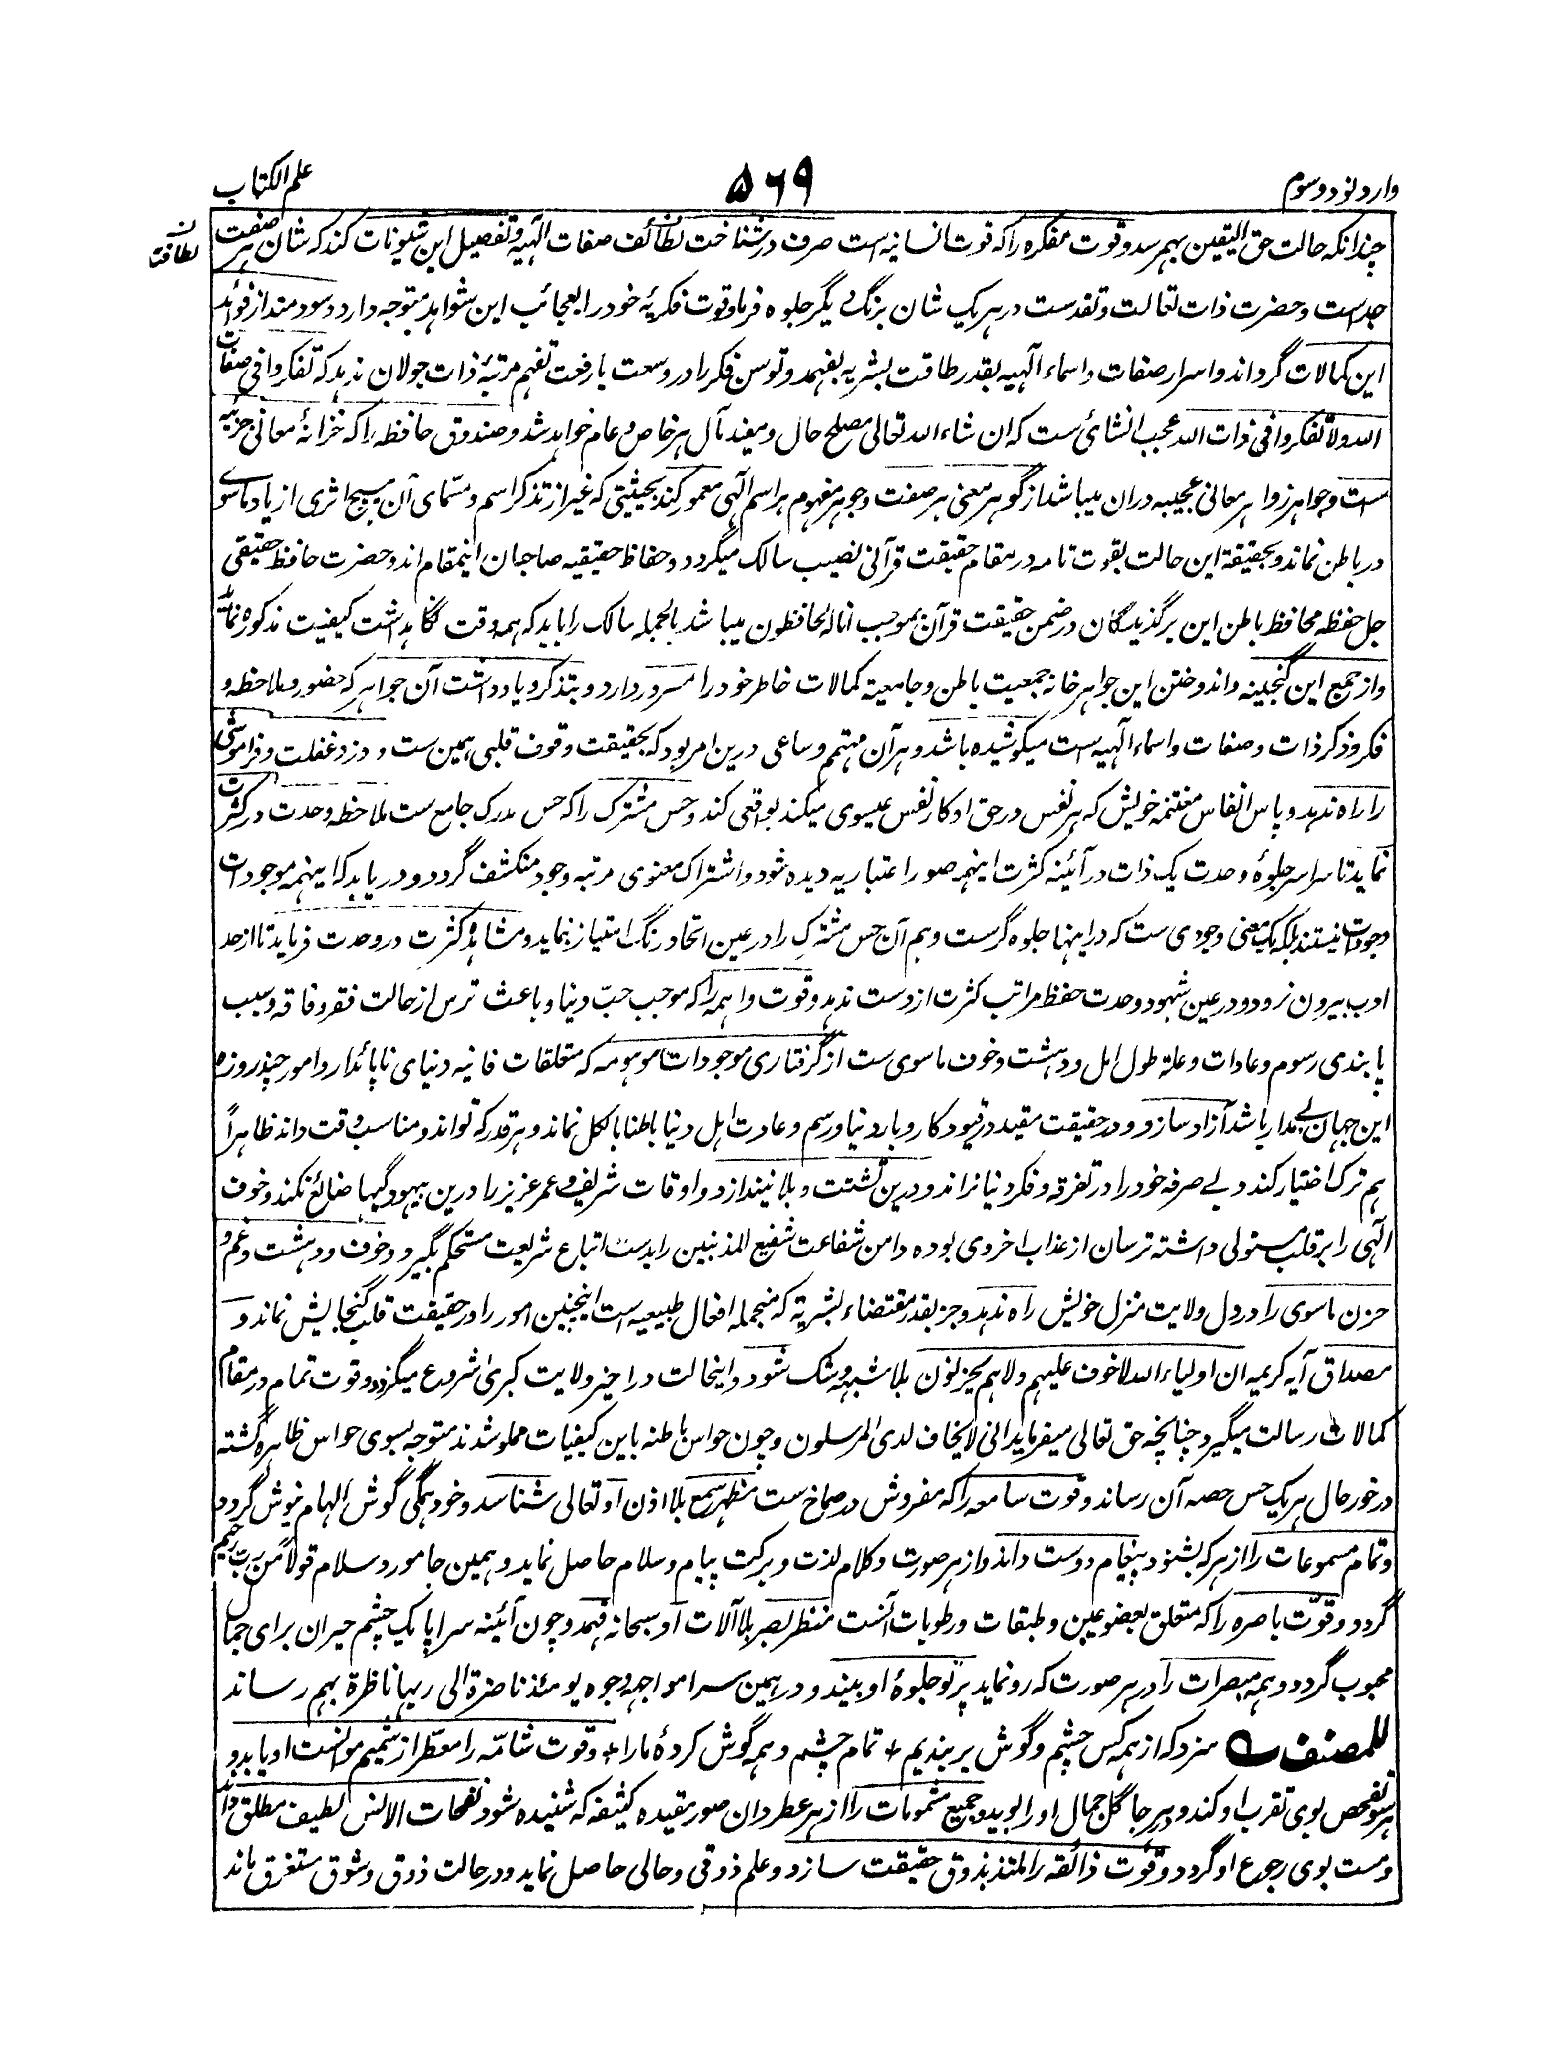 وارد نود و سوم
۵۶۹
علم الکتاب
چندانکه حالت حق الیقین بهمرسد و قوت مفکره را که قوت انسانیه است صرف در شناخت لطائف صفات الٓهیه و تفصیل این شیونات کند که شان هر صفت
لطافت
جداست و حضرت ذات تعالت و تقدست در هر یک شان برنگ دیگر جلوه فرما و قوت فکریهٔ خود را بعجائب این شواهد متوجه دارد و سودمند از فوائد
این کمالات گرداند و اسرار صفات و اسماء الٓهیه بقدر طاقت بشریه بفهمد و توسن فکر را در وسعت یا رفعت تفهم مرتبهٔ ذات جولان ندهد که تفکروا فی صفات
الله ولا تفکروا فی ذات الله عجب انشائی ست که ان شاء الله تعالی مصلح حال و مفید مآل هر خاص و عام خواهد شد و صندوق حافظه را که خزانهٔ معانی جزئیه
است و جواهر زواهر معانی عجیبه دران میباشد از گوهر معنی هر صفت و جوهر مفهوم هر اسم الٓهی معمور کند بحیثیتی که غیر از تذکر اسم و مسمای آن هیچ اثری از یاد ماسوی
در باطن نماند و بحقیقة این حالت بقوت تامه در مقام حقیقت قرآنی نصیب سالک میگردد و حفاظ حقیقیه صاحبان اینمقام اند و حضرت حافظ حقیقی
جل حفظه محافظ باطن این برگزیدگان در ضمن حقیقت قرآن بموجب انا له لحافظون میباشد بالجمله سالک را باید که همه وقت نگاهداشت کیفیت مذکوره نماید
و از جمع این گنجینه و اندوختن این جواهر خانه جمعیت باطن و جامعیة کمالات خاطر خود را مسرور دارد و بتذکر و یادداشت آن جواهر که حضور و ملاحظه و
فکر و ذکر ذات و صفات و اسماء الٓهیه ست میکوشیده باشد و هر آن مهتمم و ساعی درین امر بود که بحقیقت وقوف قلبی همین ست و دزد غفلت و فراموشی
را راه ندهد و پاس انفاس مغتنمه خویش که هر نفس در حق او کار نفس عیسوی میکند بواقعی کند و حس مشترک را که حس مدرک جامع ست ملاحظه وحدت در کثرت
نماید تا سراسر جلوهٔ وحدت یک ذات در آئینه کثرت اینهمه صور اعتباریه دیده شود و اشتراک معنوی مرتبه وجود منکشف گردد و دریابد که اینهمه موجودات
وجودات نیستند بلکه یک معنی وجودی ست که در اینها جلوه گرست و هم آن حس مشترک را در عین اتحاد رنگ امتیاز بنماید و مشاهده کثرت در وحدت فرماید تا از حد
ادب بیرون نرود و در عین شهود وحدت حفظ مراتب کثرت از دست ندهد و قوت واهمه را که موجب حبّ دنیا و باعث ترس از حالت فقر و فاقه و سبب
پابندی رسوم و عادات و علة طول امل و دهشت و خوف ماسوی ست از گرفتاری موجودات موهومه که متعلقات فانیه دنیای ناپائدار و امور چند روزه
این جهان بی مدار باشد آزاد سازد و در حقیقت مقید در قیود کاروبار دنیا و رسم و عادت اهل دنیا باطنا بالکل نماند و هر قدر که تواند و مناسب وقت داند ظاهراً
هم ترک اختیار کند و بی صرفه خود را در تفرقه و فکر دنیا نراند و درین تشتت و بلا نیندازد و اوقات شریف و عمر عزیز را درین بیهودگیها ضائع نکند و خوف
الٓهی را بر قلب مستولی داشته ترسان از عذاب اخروی بوده دامن شفاعت شفیع المذنبین را بدست اتباع شریعت مستحکم بگیرد و خوف و دهشت و غم و
حزن ماسوی را در دل ولایت منزل خویش راه ندهد و جز بقدر مقتضاء بشریة که منجمله افعال طبیعیه است اینچنین امور را در حقیقت قلب گنجایش نماند و
مصداق آیه کریمه ان اولیاء الله لا خوف علیهم ولا هم یحزنون بلا شبهه و شک شود و اینحالت در اخیر ولایت کبریٰ شروع میگردد و قوت تمام در مقام
کمالات رسالت میگیرد چنانچه حق تعالی میفرماید انی لا یخاف لدی المرسلون و چون حواس باطنه باین کیفیات مملو شدند متوجه بسوی حواس ظاهره گشته
در خور حال هر یک حس حصه آن رساند و قوت سامعه را که مفروش در صماخ ست مظهر سمع بلا اذن او تعالی شناسد و خود همگی گوش الهام نیوش گردد
و تمام مسموعات را از هر که بشنود پیغام دوست داند و از هر صورت و کلام لذت و برکت پیام و سلام حاصل نماید و همین جا مورد سلام قولاً من رب رحیم
گردد و قوّت باصره را که متعلق بعضو عین و طبقات و رطوبات آنست منظر بصر بلا آلات او سبحانه فهمد و چون آئینه سراپا یک چشم حیران برای جمال
محبوب گردد و همه مبصرات را در هر صورت که رو نماید پرتو جلوهٔ او بیند و در همین سرا مواجهه وجوه یومئذ ناضرة الی ربها ناظرة بهم رساند
للمصنف سزد که از همه کس چشم و گوش بر بندیم + تمام چشم و همه گوش کردهٔ ما را + و قوت شامّه را معطّر از شمیم موانست او یابد و
هر سو تفحص بوی تقرب او کند و هر جا گل جمال او را بوید و جمیع مشمومات را از هر عطردان صور مقیده کثیفه که شنیده شود نفحات الانس لطیف مطلق داند
و مست بوی رجوع او گردد و قوّت ذائقه را ملتذ بذوق حقیقت سازد و علم ذوقی و حالی حاصل نماید و در حالت ذوق و شوق مستغرق ماند